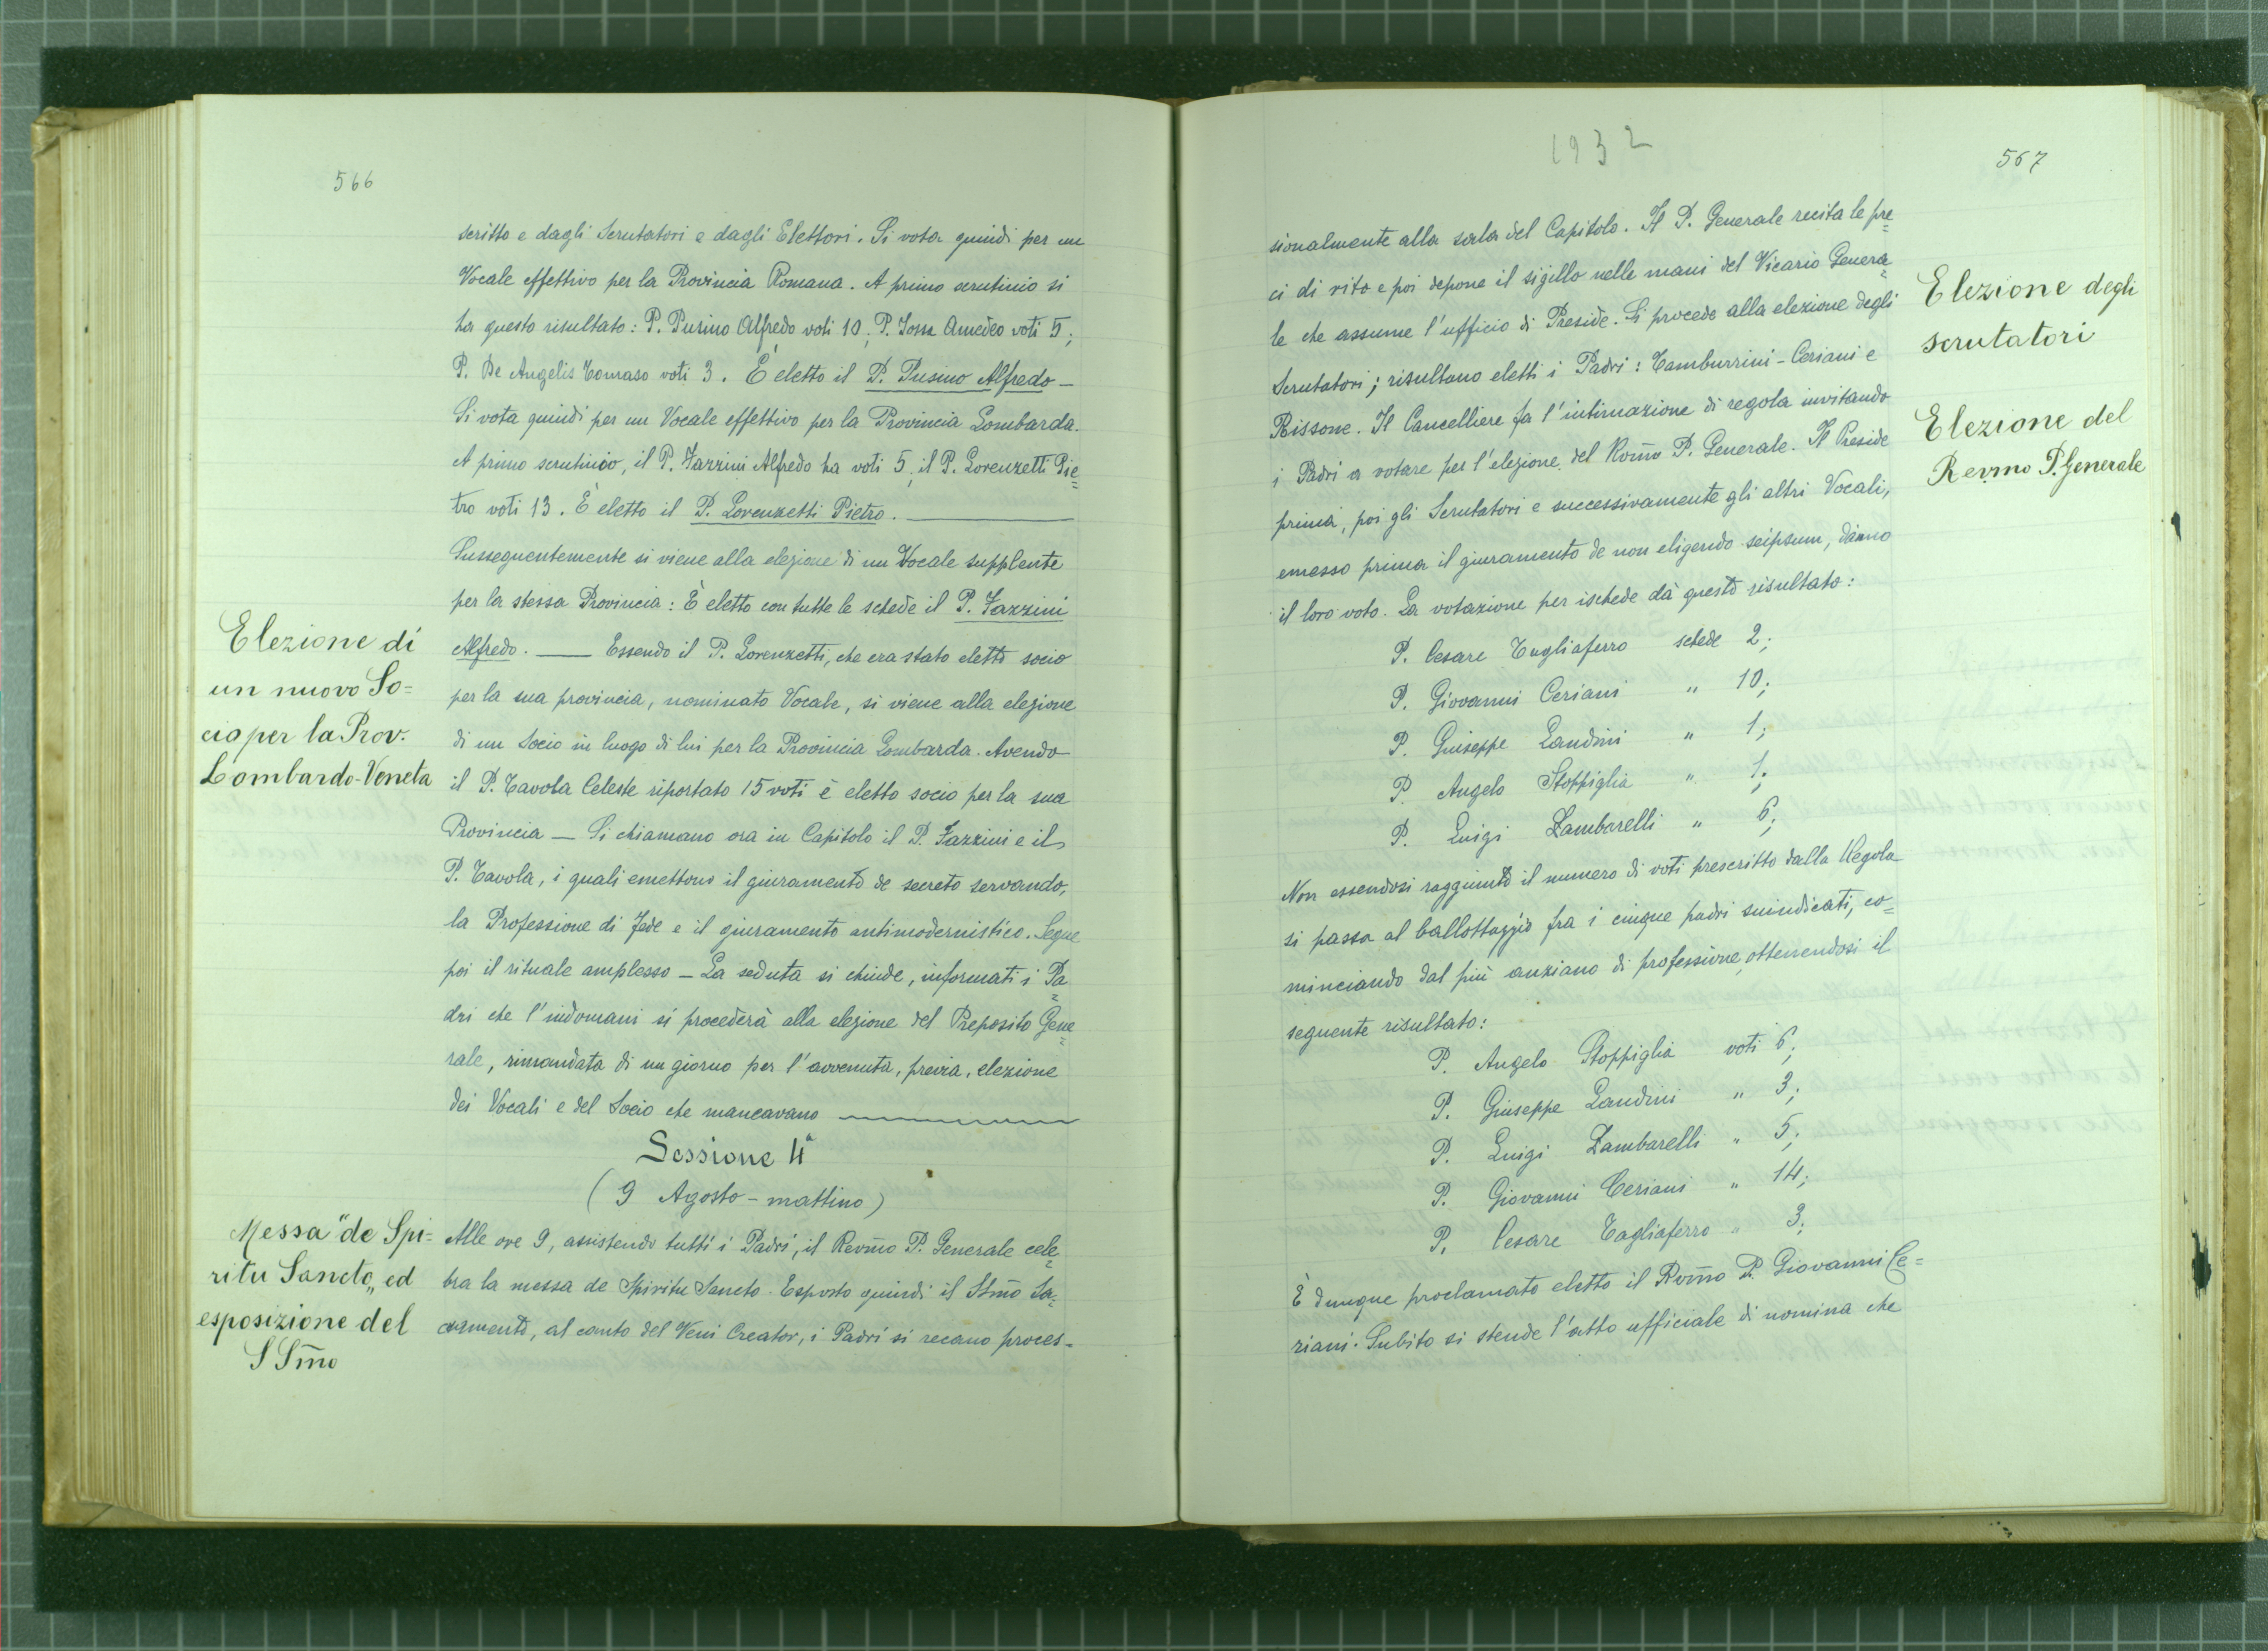 566
scritto e dagli Scrutatori e dagli Elettori. Si vota quindi per un
Vocale effettivo per la Provincia Romana. A primo scrutinio si
ha questo risultato: P. Pusino Alfredo voti 10; P. Jossa Amedeo voti 5;
P. De Angelis Tomaso voti 3. È eletto il P. Pusino Alfredo —
Si vota quindi per un Vocale effettivo per la Provincia Lombarda.
A primo scrutinio, il P. Fazzini Alfredo ha voti 5, il P. Lorenzetti Pie=
tro voti 13. È eletto il P. Lorenzetti Pietro. —
Susseguentemente si viene alla elezione di un Vocale supplente
per la stessa Provincia: È eletto con tutte le schede il P. Fazzini
Alfredo. — Essendo il P. Lorenzetti, che era stato eletto socio
per la sua provincia, nominato Vocale, si viene alla elezione
di un Socio in luogo di lui per la Provincia Lombarda. Avendo
il P. Tavola Celeste riportato 15 voti è eletto socio per la sua
Provincia — Si chiamano ora in Capitolo il P. Fazzini e il
P. Tavola, i quali emettono il giuramento de secreto servando,
la Professione di Fede e il giuramento antimodernistico. Segue
poi il rituale amplesso — La seduta si chiude, informati i Pa=
dri che l'indomani si procederà alla elezione del Preposito Gene=
rale, rimandata di un giorno per l'avvenuta, previa, elezione
dei Vocali e del Socio che mancavano —
Elezione di
un nuovo So=
cio per la Prov.
Lombardo-Veneta
Sessione 4ª
(9 Agosto - mattino)
Messa "de Spi=
ritu Sancto„ ed
esposizione del
SSm̃o
Alle ore 9, assistendo tutti i Padri, il Revm̃o P. Generale cele=
bra la messa de Spiritu Sancto. Esposto quindi il SSm̃o Sa=
cramento, al canto del Veni Creator, i Padri si recano proces=
1932
567
sionalmente alla sala del Capitolo. Il P. Generale recita le pre=
ci di rito e poi depone il sigillo nelle mani del Vicario Genera=
le che assume l'ufficio di Preside. Si procede alla elezione degli
Scrutatori; risultano eletti i Padri: Tamburrini - Ceriani e
Rissone. Il Cancelliere fa l'intimazione di regola invitando
i Padri a votare per l'elezione del Rom̃o P. Generale. Il Preside
prima, poi gli Scrutatori e successivamente gli altri Vocali,
emesso prima il giuramento de non eligendo seipsum, danno
il loro voto. La votazione per ischede dà questo risultato:
P. Cesare Tagliaferro schede 2;
P. Giovanni Ceriani " 10;
P. Giuseppe Landini " 1;
P. Angelo Stoppiglia " 1;
P. Luigi Zambarelli " 6;
Non essendosi raggiunto il numero di voti prescritto dalla Regola
si passa al ballottaggio fra i cinque padri suindicati, co=
minciando dal più anziano di professione, ottenendosi il
seguente risultato:
P. Angelo Stoppiglia voti 6;
P. Giuseppe Landini " 3;
P. Luigi Zambarelli " 5;
P. Giovanni Ceriani " 14;
P. Cesare Tagliaferro " 3;
È dunque proclamato eletto il Rvm̃o P. Giovanni Ce=
riani. Subito si stende l'atto ufficiale di nomina che
Elezione degli
scrutatori
Elezione del
Revmo P. Generale